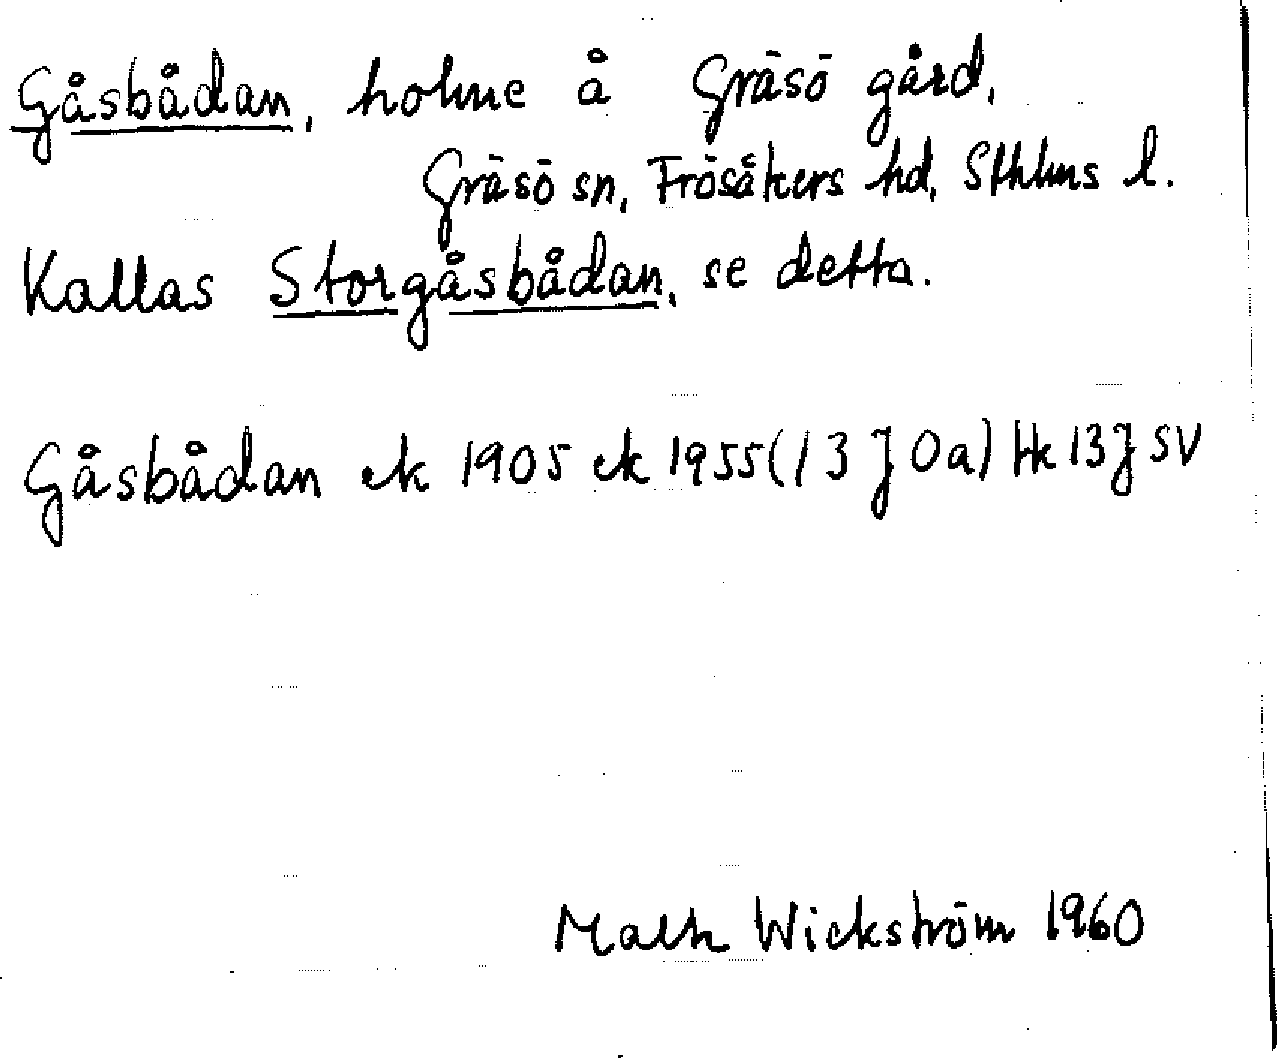 Gåsbådan, holme å Gräsö gård,
Gräsö sn, Frösåkers hd, Sthlms l.
Kallas Storgåsbådan, se detta.
Gåsbådan ek 1905 ek 1955 (13 J 0a) Hk 13J SV
Math Wickström 1960